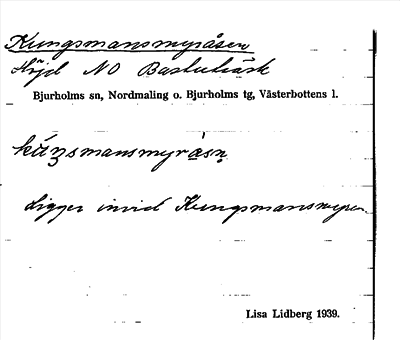 Kungsmansmyråsen
Höjd NO Bastuträsk
Bjurholms sn, Nordmaling o. Bjurholms tg, Västerbottens l.
kúŋsmansmyråsn̥
Ligger invid Kungsmansmyren
Lisa Lidberg 1939.